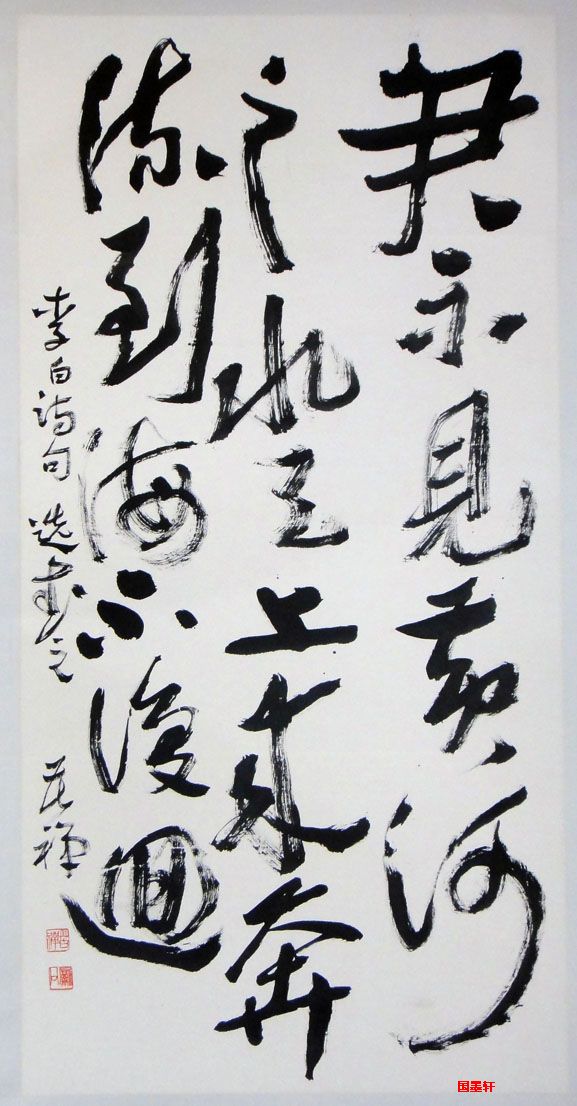 君不見黃河
之水天上來奔
流到海不復迴
李白詩句選書之 苦禪
国墨轩